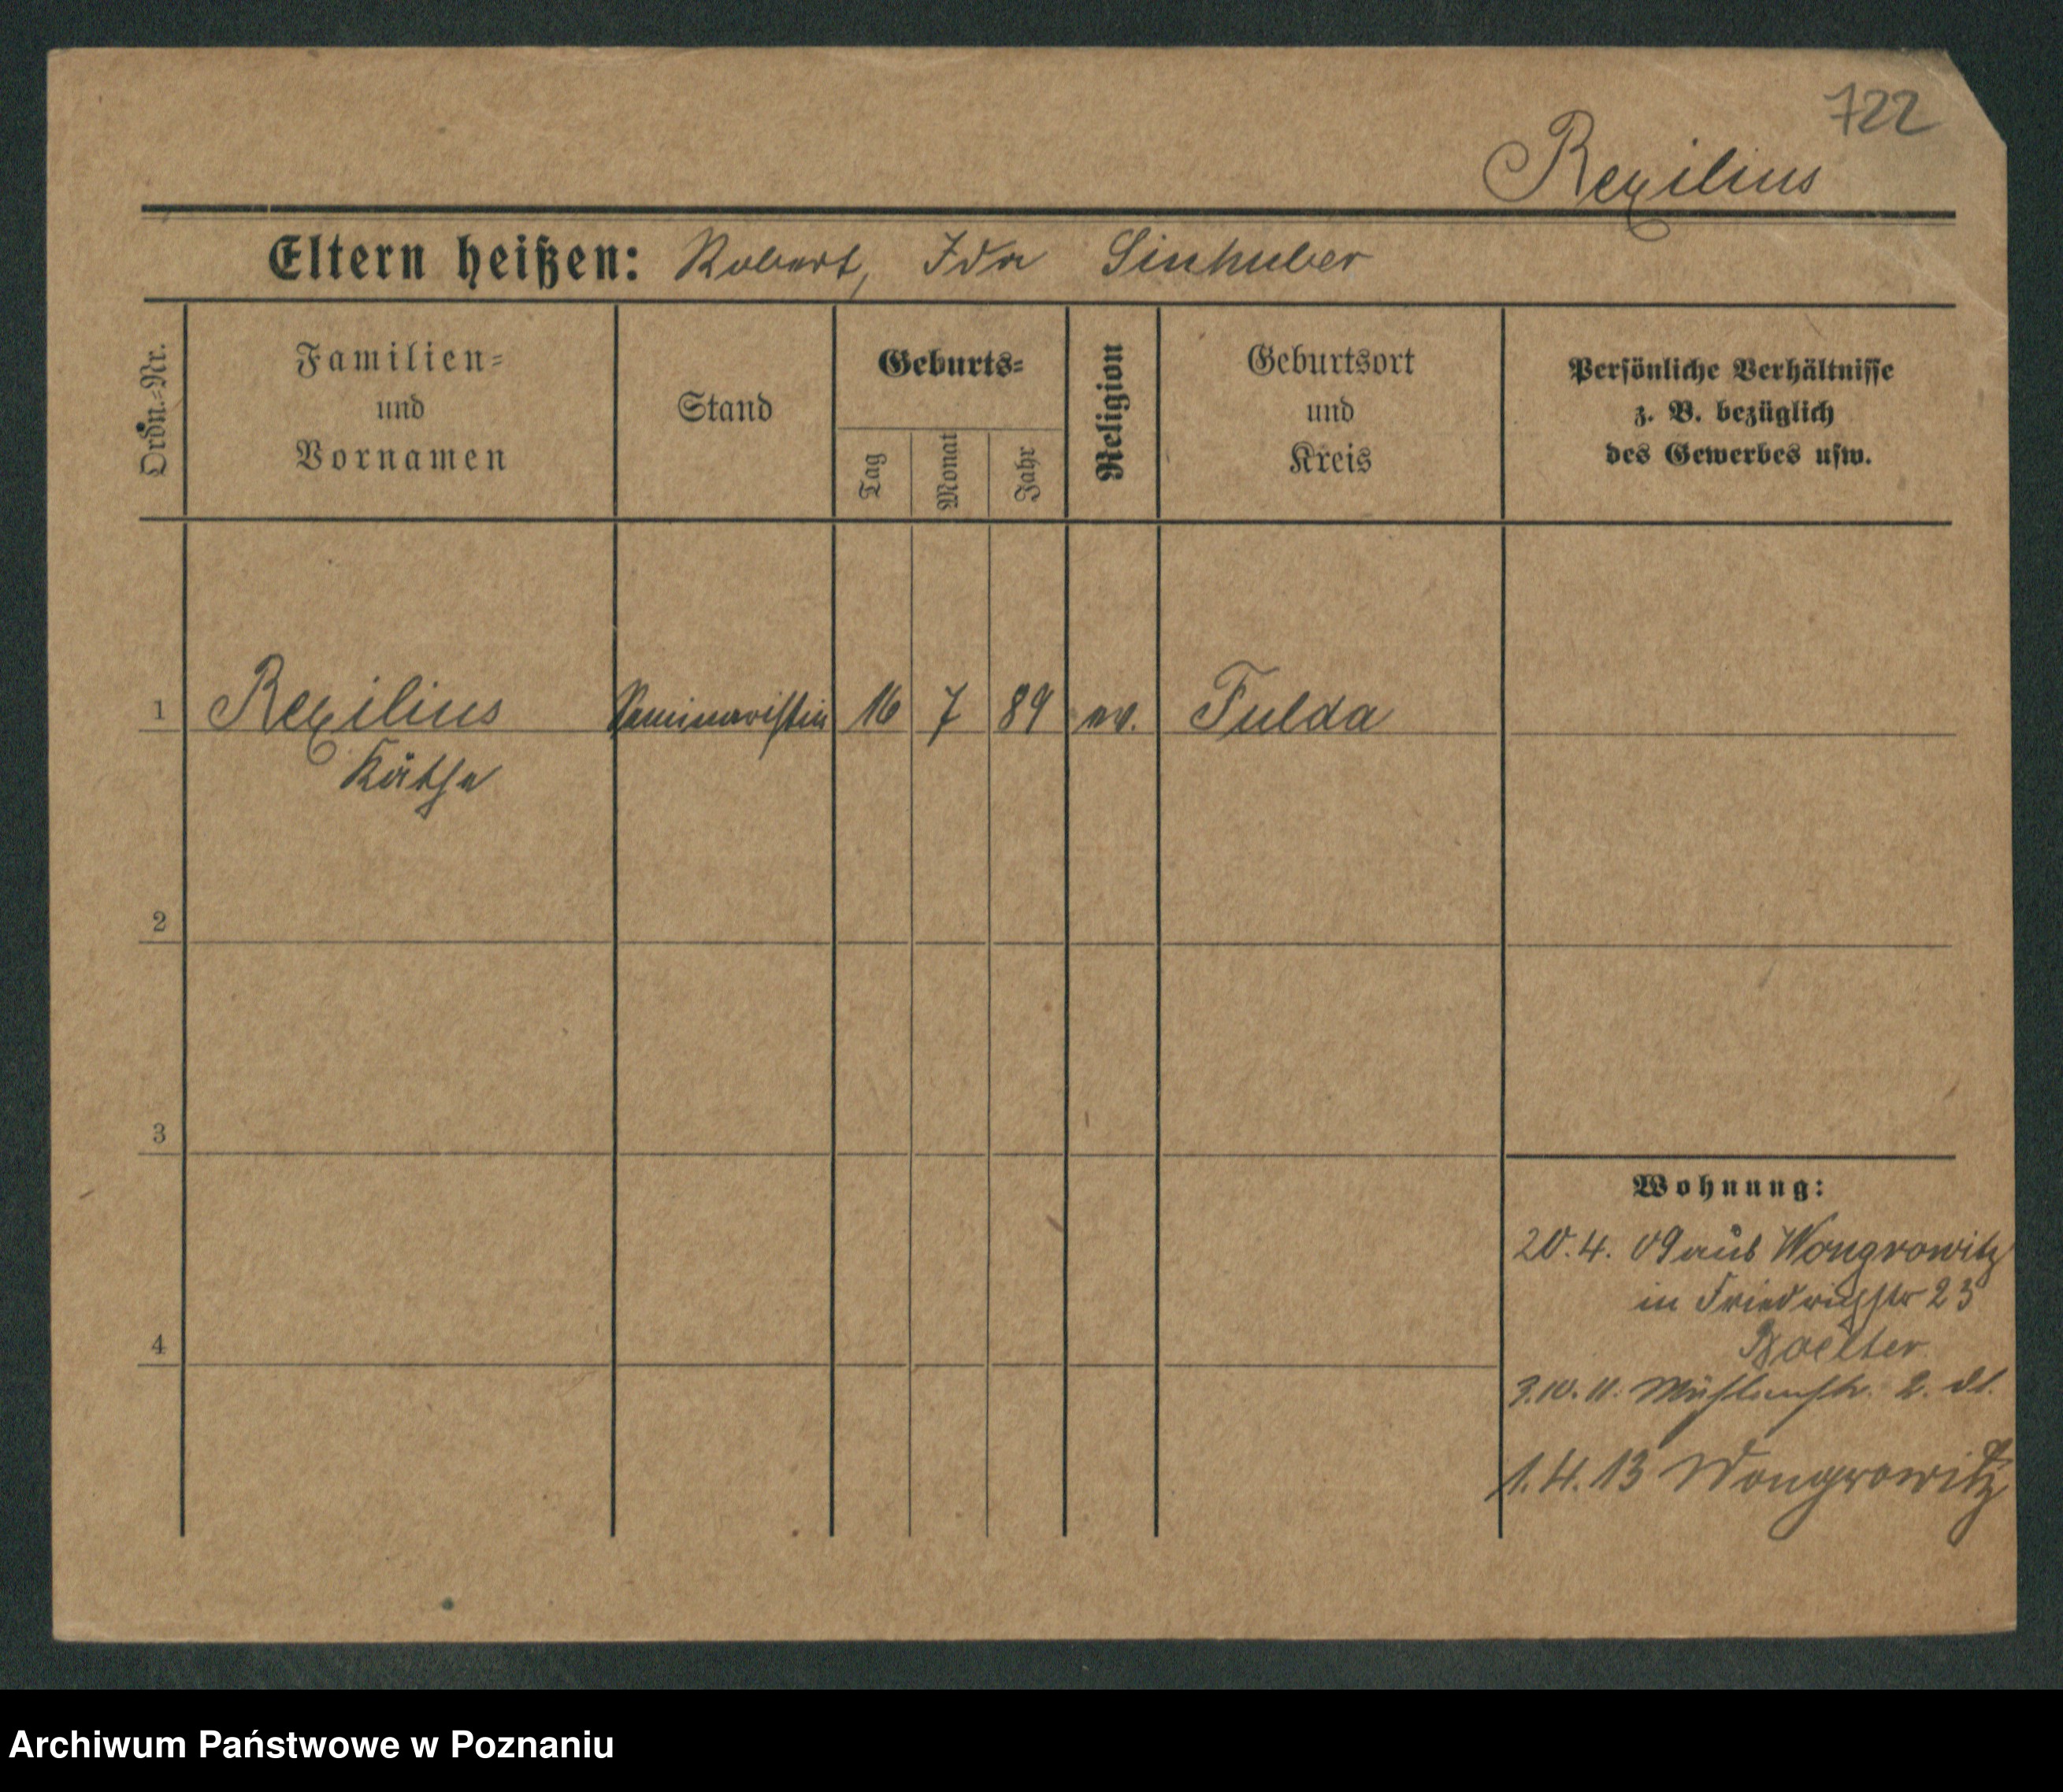 722
Rexilius
Eltern heißen: Robert, Ida Sinhuber
Ordn.-Nr.
Familien-
und
Vornamen
Stand
Geburts-
Tag
Monat
Jahr
Religion
Geburtsort
und
Kreis
Persönliche Verhältnisse
z. B. bezüglich
des Gewerbes usw.
1 Rexilius Seminaristin 16 7 89 ev. Fulda
Käthe
2
3
Wohnung:
20. 4. 09 aus Wongrowitz
in Friedrichstr 23
4
3.10.11. Mühlenstr. 2.
1. 4. 13 Wongrowitz
Archiwum Państwowe w Poznaniu